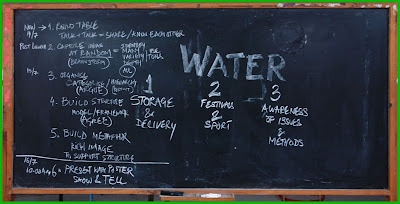 NOW → 1. ROUND TABLE
TALK & TALK = SHARE / KNOW EACH OTHER
POST LUNCH 2. CAPSULE IDEAS
AT RANDOM
(BRAINSTORM)
MANY
VARIETY
ALL
3. ORGANISE
CATEGORISE / HIERARCHY
(ARGUE)
4. BUILD STRUCTURE
MODEL / FRAMEWORK
(AGREE)
5. BUILD METAPHOR
RICH IMAGE
TO SUPPORT STRUCTURE
6 = PRESENT WITH POSTER
SHOW & TELL
WATER
1
STORAGE
&
DELIVERY
2
FESTIVALS
&
SPORT
3
AWARENESS
OF ISSUES
&
METHODS